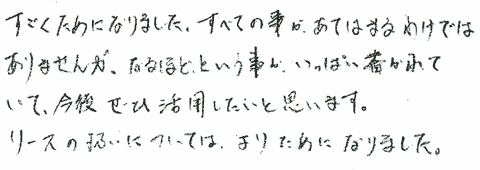 すごくためになりました。すべての事が、あてはまるわけでは
ありませんが、なるほど、という事が、いっぱい書かれて
いて、今後ぜひ活用したいと思います。
リースの扱いについては、よりためになりました。